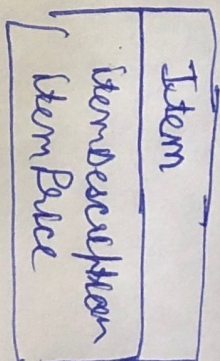 Item
itemDescription
itemPrice